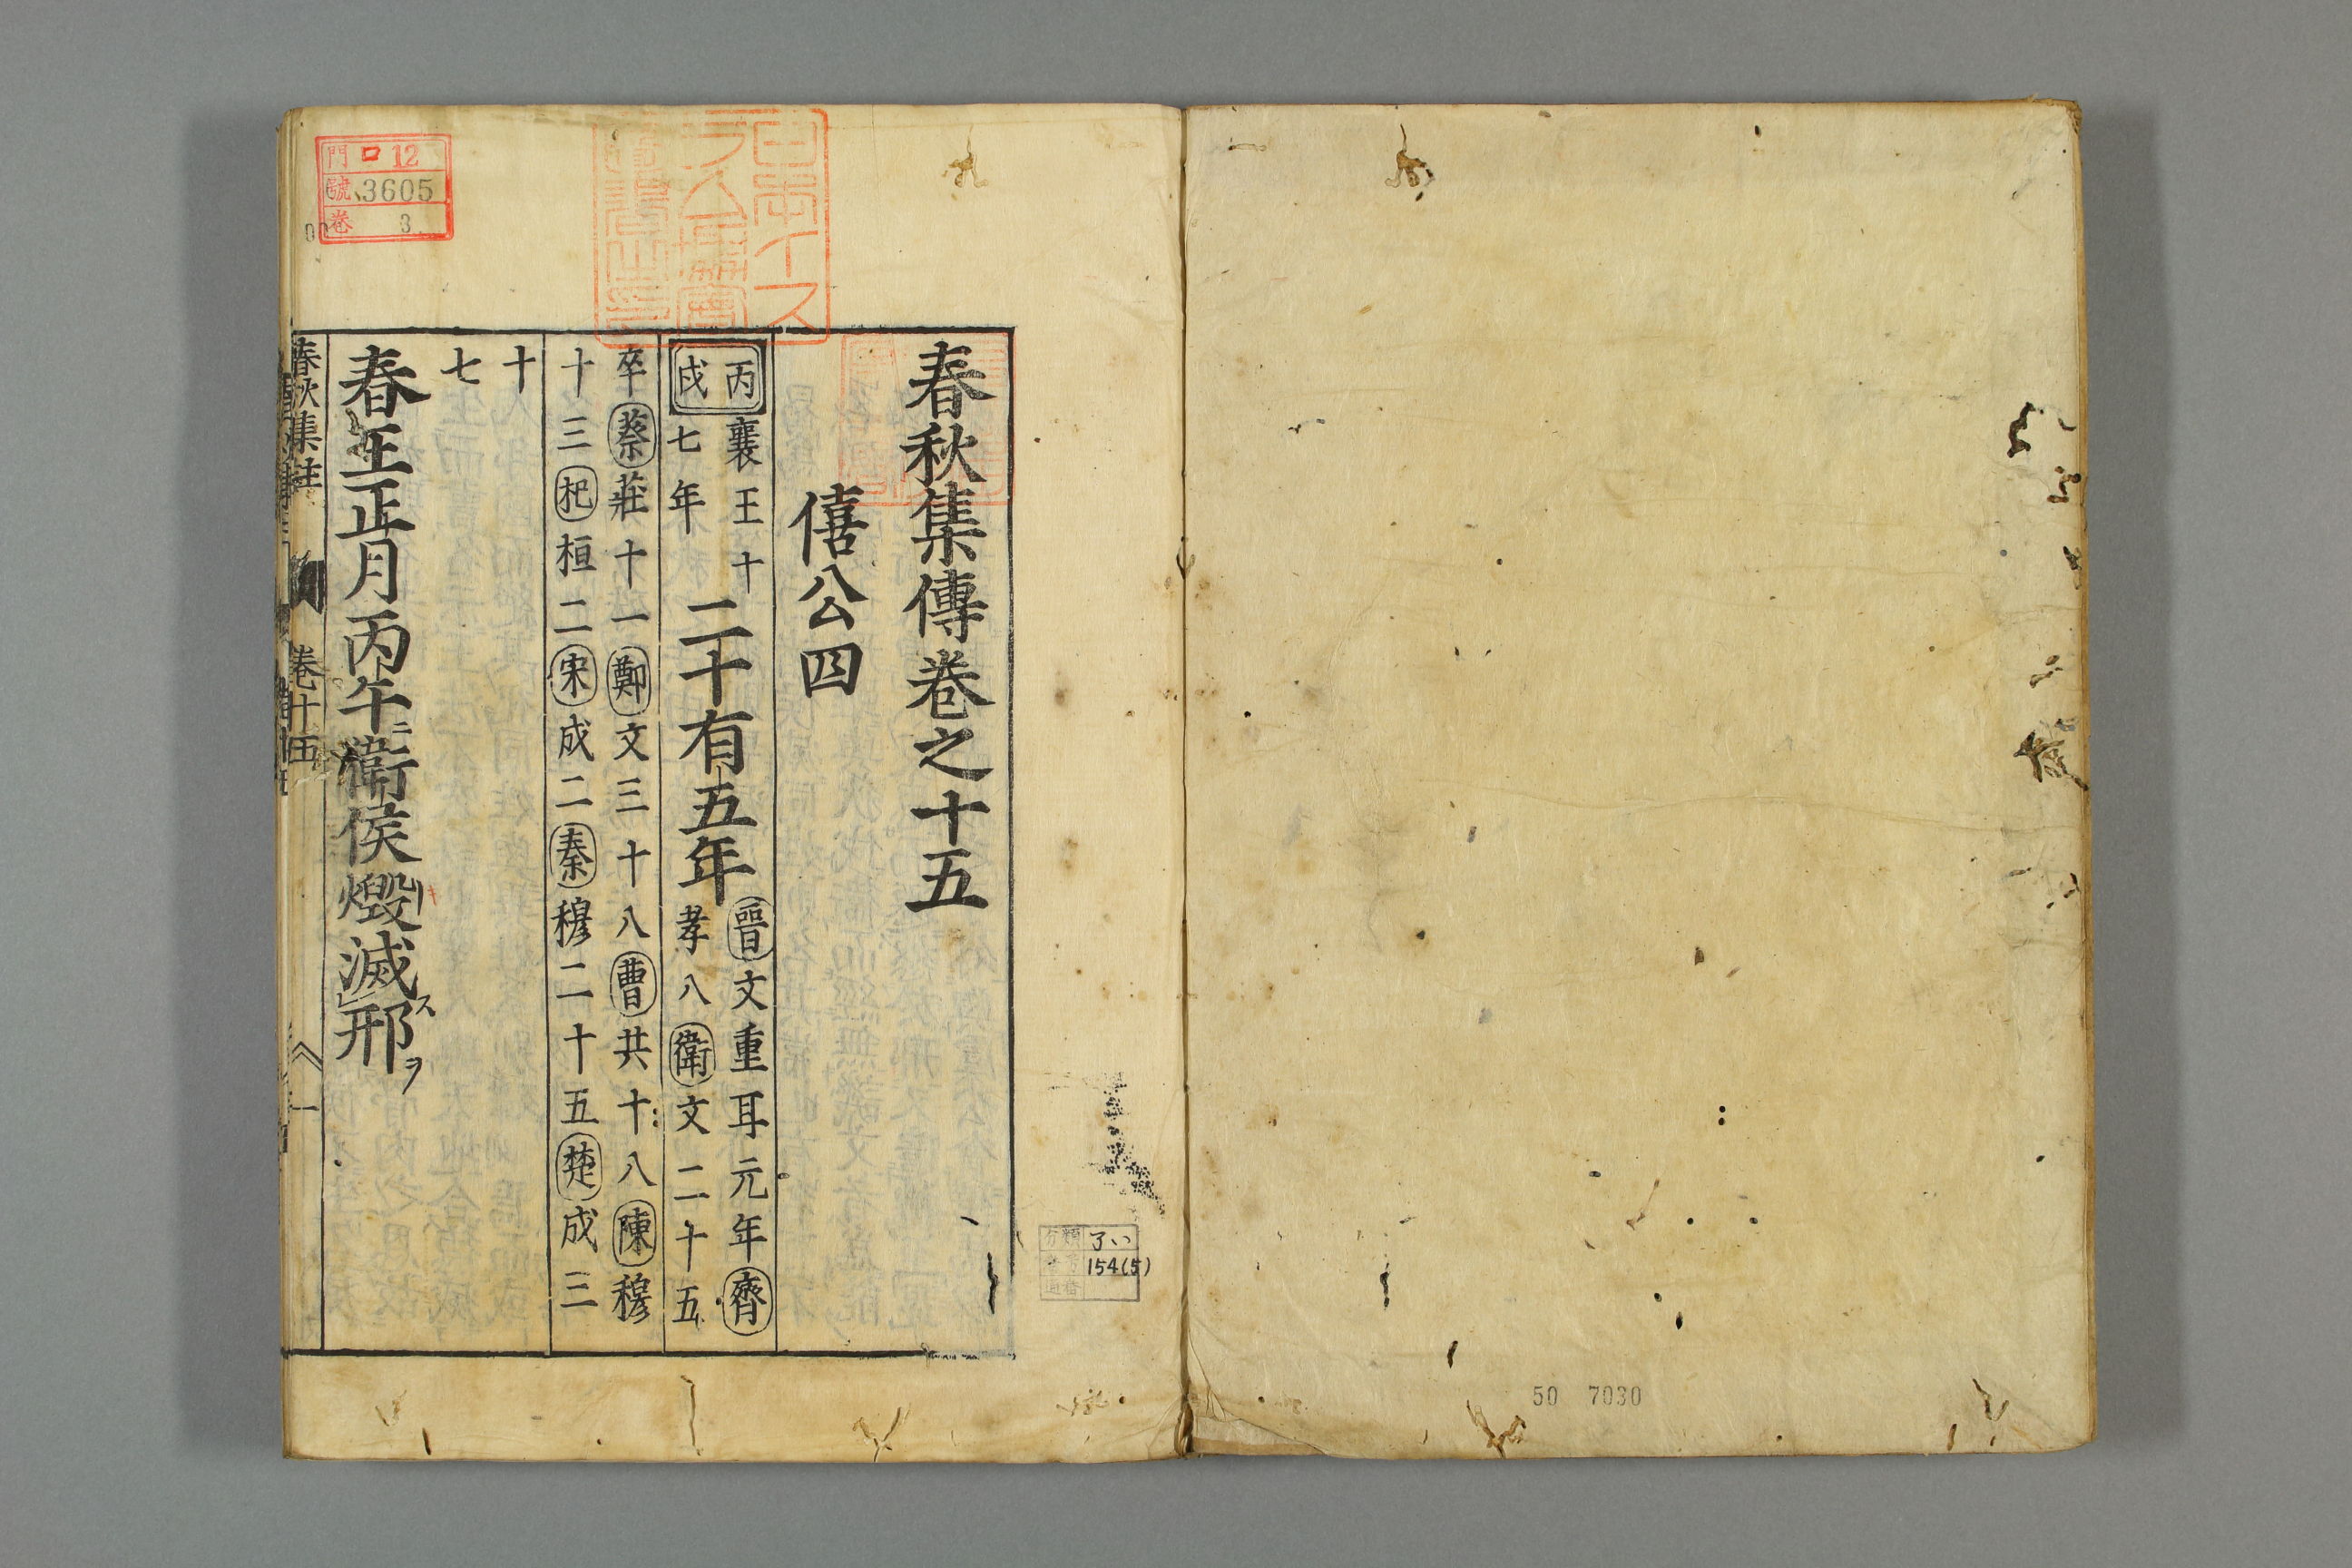 春秋集傳卷之十五
僖公四
丙戌
襄王十
七年
二十有五年
晉文重耳元年齊
孝八衛文二十五
卒蔡莊十一鄭文三十八曹共十八陳穆
十三杞桓二宋成二秦穆二十五楚成三
十
七
春王正月丙午ニ衛侯燬滅ス邢ヲ
春秋集註
卷十五
一
門 口 12
號 3605
卷 3
日本イスラム
分類 了い
154(5)
50 7030